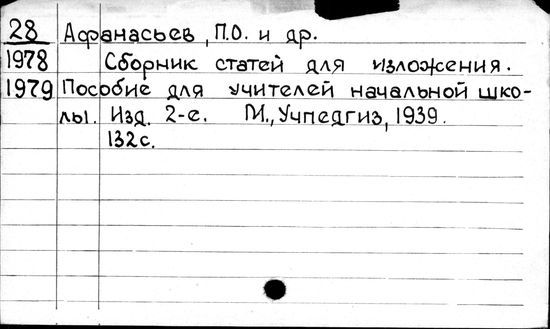 28 Афанасьев, П.О. и др.
1978 Сборник статей для изложения.
1979 Пособие для учителей начальной шко-
лы. Изд. 2-е. М., Учпедгиз, 1939.
132с.